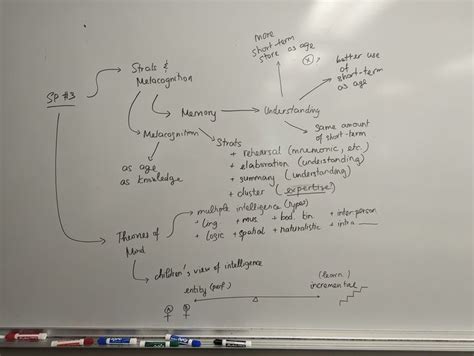 SP #3
Strats &
Metacognition
Memory
Understanding
more
short-term
store as age
(x)
better use
of
short-term
as age
same amount
of short-term
Metacognition
as age
as knowledge
Strats
+ rehearsal (mnemonic, etc.)
+ elaboration (understanding)
+ summary (understanding)
+ cluster (expertise!)
Theories of
Mind
multiple intelligence (types)
+ ling + mus + bod. kin + inter-person
+ logic + spatial + naturalistic + intra
children's view of intelligence
entity (perf)
(learn)
incremental